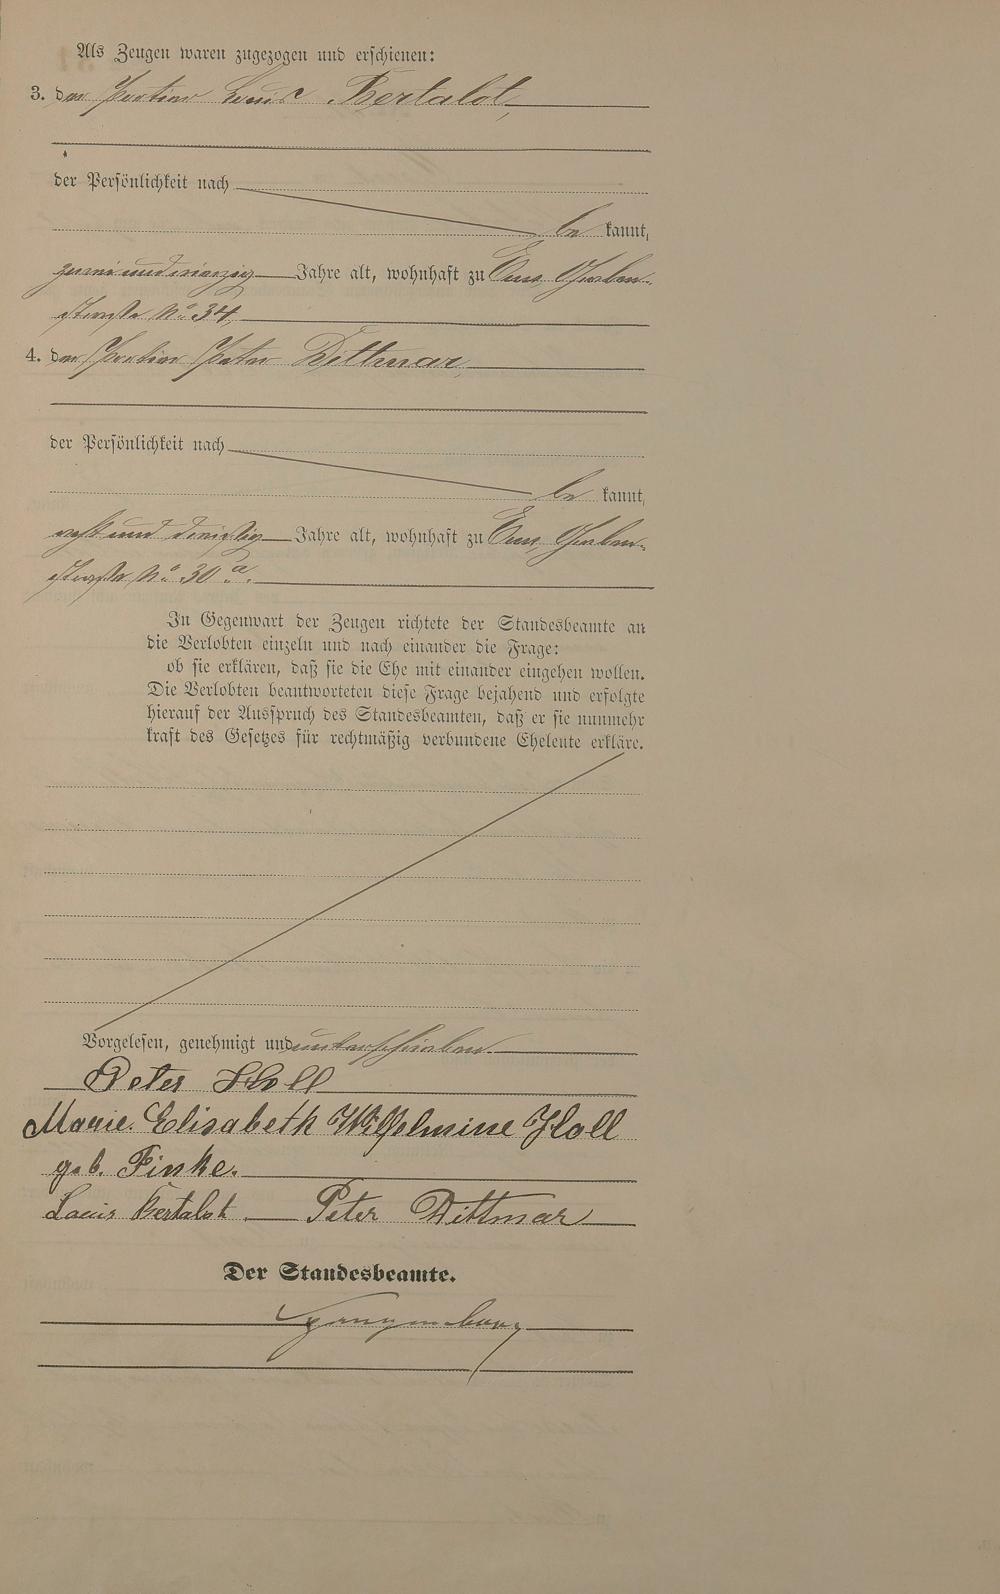 Als Zeugen waren zugezogen und erschienen:
3. der Portier Louis Bertalot,
der Persönlichkeit nach
be kannt,
zwei und vierzig Jahre alt, wohnhaft zu Ems, Graben-
straße No. 34,
4. der Portier Peter Dittmar,
der Persönlichkeit nach
be kannt,
acht und dreißig Jahre alt, wohnhaft zu Ems, Graben-
straße No. 30 a.
In Gegenwart der Zeugen richtete der Standesbeamte an
die Verlobten einzeln und nach einander die Frage:
ob sie erklären, daß sie die Ehe mit einander eingehen wollen.
Die Verlobten beantworteten diese Frage bejahend und erfolgte
hierauf der Ausspruch des Standesbeamten, daß er sie nunmehr
kraft des Gesetzes für rechtmäßig verbundene Eheleute erkläre.
Vorgelesen, genehmigt und unterschrieben.
Peter Holl
Marie Elisabeth Wilhelmine Holl
geb. Finke.
Louis Bertalot Peter Dittmar
Der Standesbeamte.